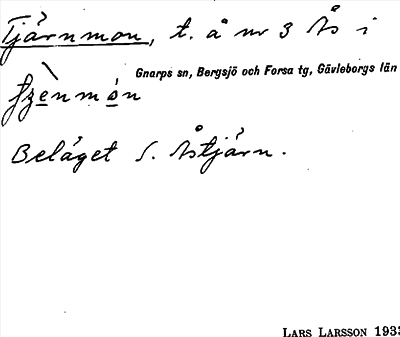 Tjärnmon, t. å nr 3 Ås i
Gnarps sn, Bergsjö och Forsa tg, Gävleborgs län
Beläget S. Åstjärn.
LARS LARSSON 1933